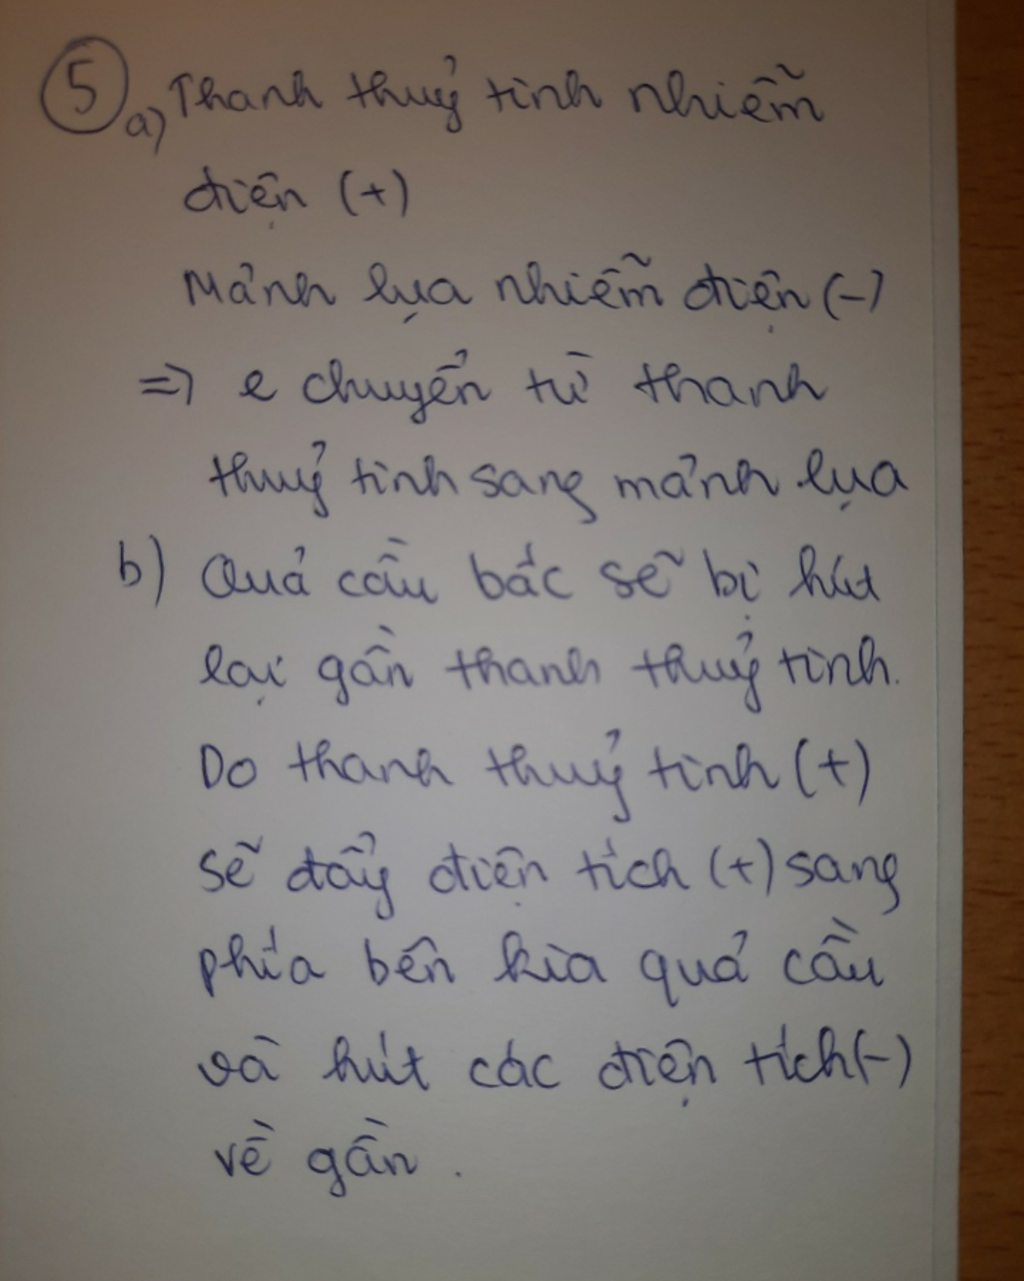 5 a) Thanh thuỷ tinh nhiễm
điện (+)
Mảnh lụa nhiễm điện (-)
=> e chuyển từ thanh
thuỷ tinh sang mảnh lụa
b) Quả cầu bấc sẽ bị hút
lại gần thanh thuỷ tinh.
Do thanh thuỷ tinh (+)
sẽ đẩy điện tích (+) sang
phía bên kia quả cầu
và hút các điện tích (-)
về gần.